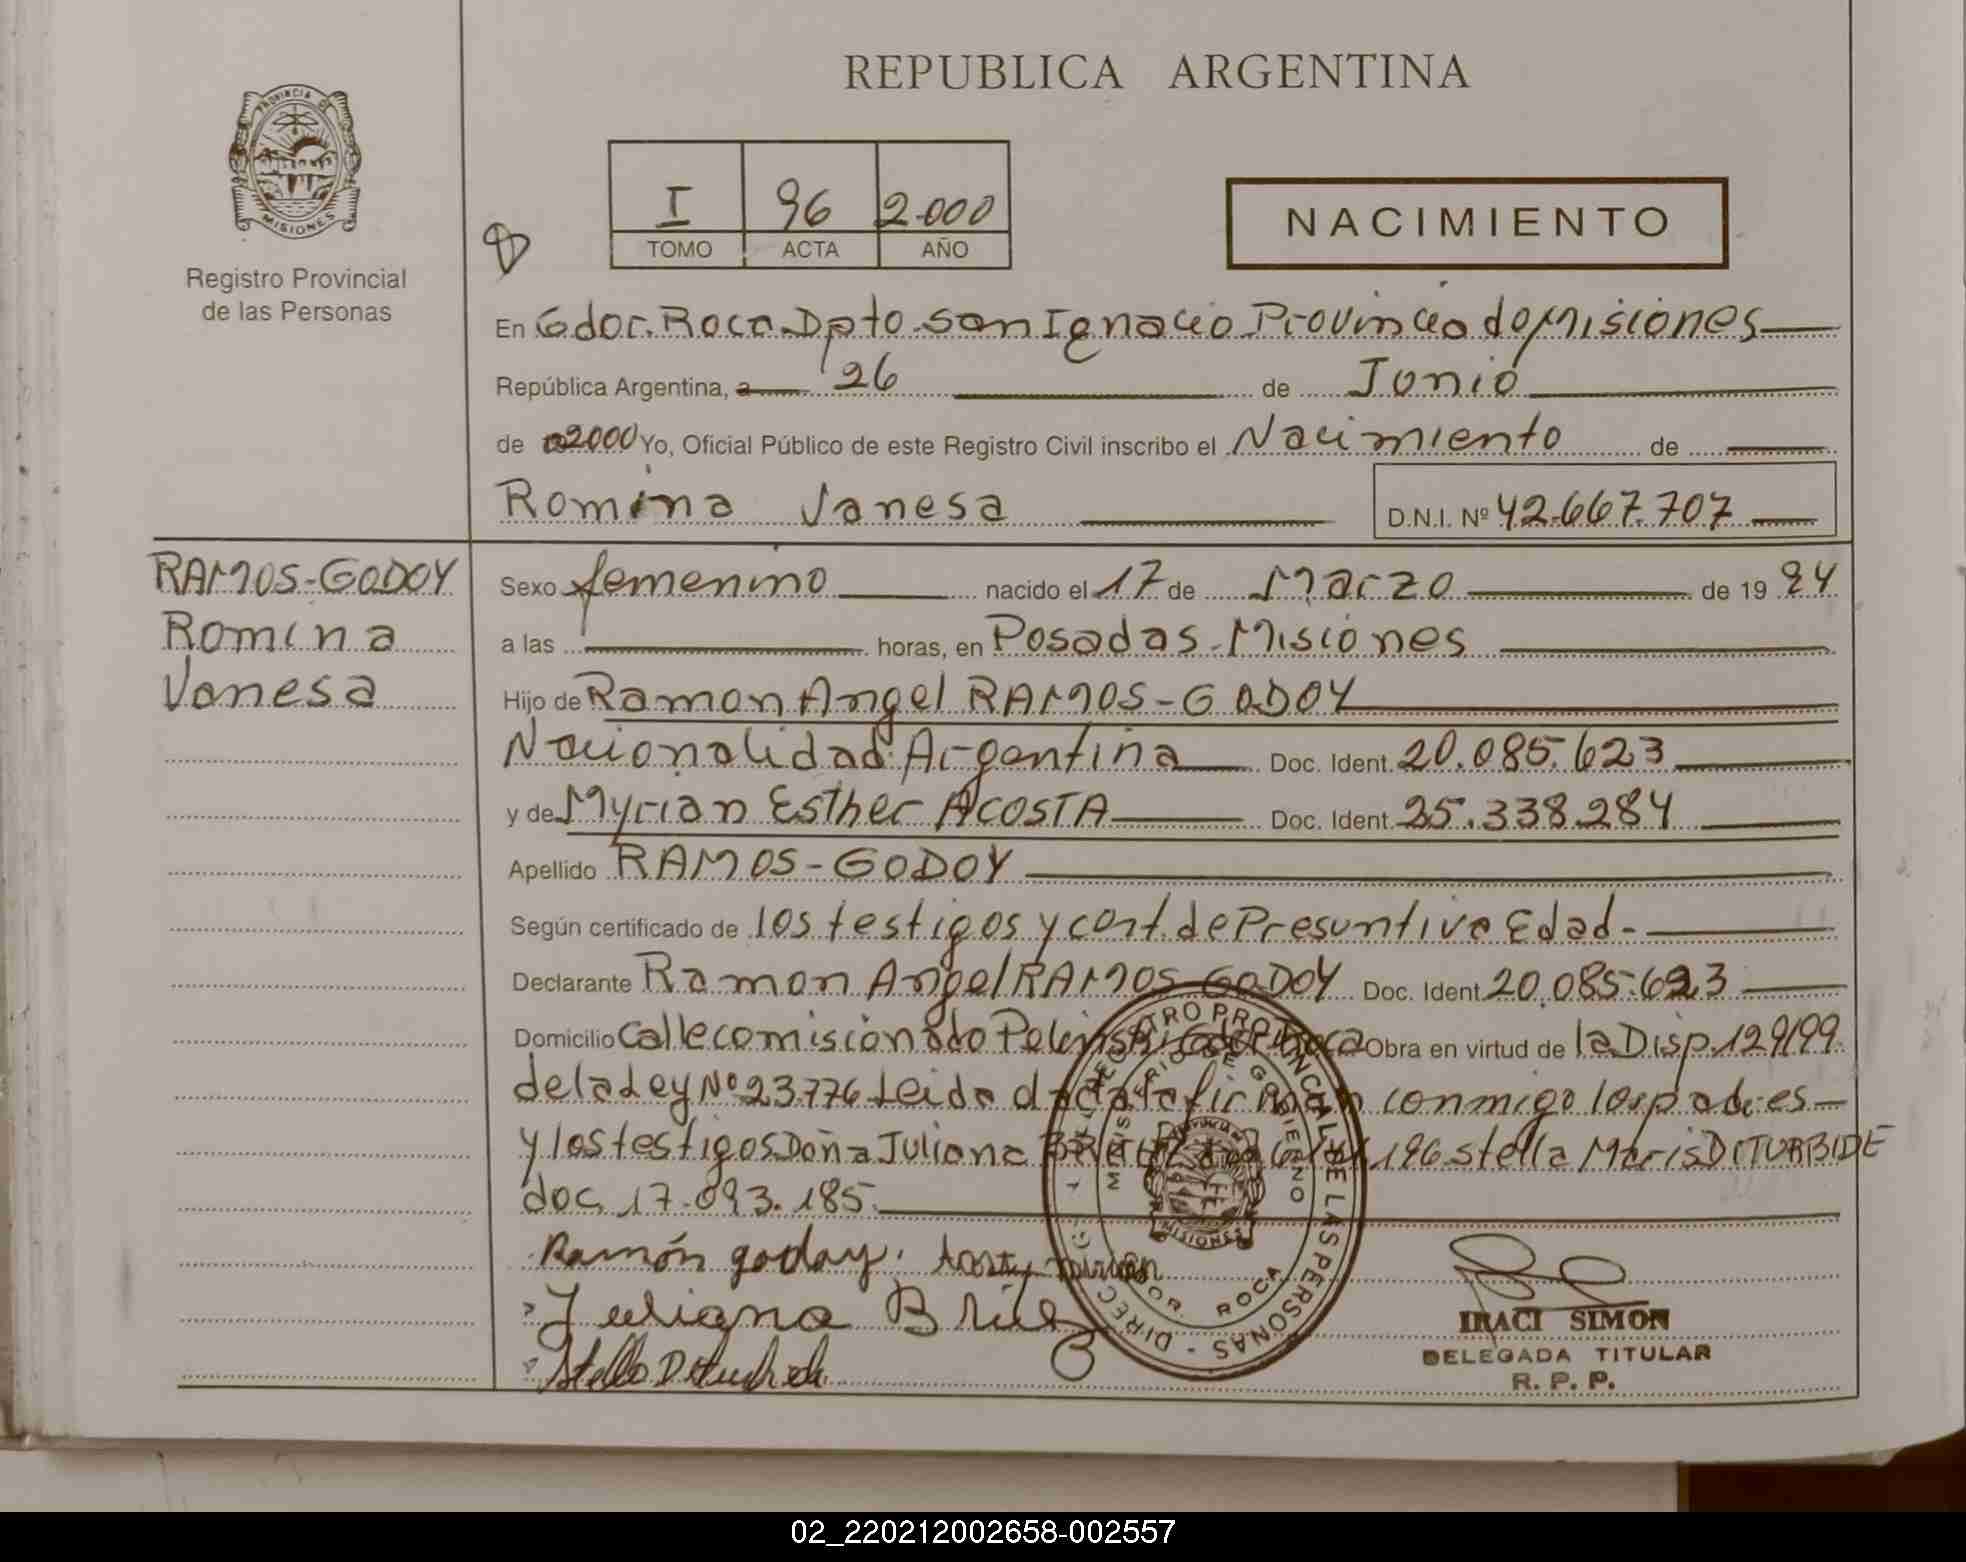 REPUBLICA ARGENTINA
PROVINCIA DE
MISIONES
Registro Provincial
de las Personas
I 96 2.000
TOMO ACTA AÑO
NACIMIENTO
En Gdor. Roca Dpto. San Ignacio Provincia de Misiones
República Argentina, a 26 de Junio
de 2000 Yo, Oficial Público de este Registro Civil inscribo el Nacimiento de
Romina Vanesa D.N.I. Nº 42.667.707
RAMOS-GODOY
Romina
Vanesa
Sexo femenino nacido el 17 de Marzo de 19 94
a las horas, en Posadas-Misiones
Hijo de Ramon Angel RAMOS-GODOY
Nacionalidad Argentina Doc. Ident. 20.085.623
y de Myrian Esther ACOSTA Doc. Ident. 25.338.284
Apellido RAMOS-GODOY
Según certificado de los testigos y cert. de Presuntiva Edad-
Declarante Ramon Angel RAMOS-GODOY Doc. Ident. 20.085.623
Domicilio Calle comisionado Gdor. Roca Obra en virtud de la Disp. 129/99
de la Ley Nº 23.776 Leida el acta firman conmigo los padres
y los testigos Doña Juliana 196 Stella Maris DITURBIDE
doc. 17.093.185.
DIREC. GRAL. DEL REGISTRO PROVINCIAL DE LAS PERSONAS
MINISTERIO DE GOBIERNO
MISIONES
GDOR. ROCA
Ramón godoy. Acosta Mirian
Juliana Britez
IRACI SIMON
DELEGADA TITULAR
R. P. P.
02_220212002658-002557